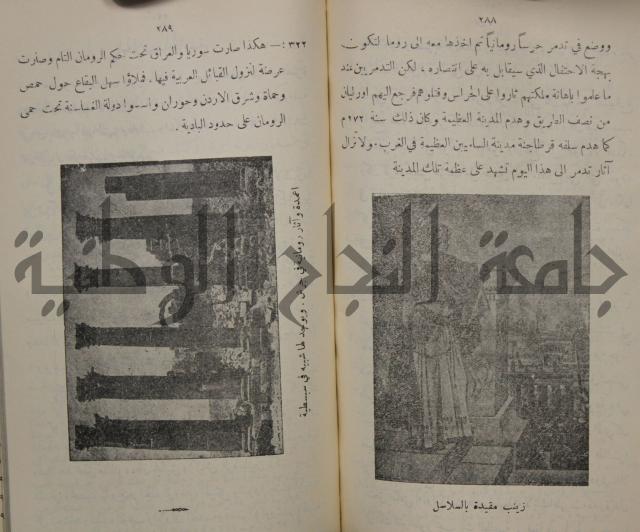 ٢٨٨
ووضع في تدمر حرساً رومانياً ثم اخذها معه الى روما لتكون
بهجة الاحتفال الذي سيقابل به على انتصاره، لكن التدمريين عند
ما علموا باهانة ملكتهم ثاروا على الحراس وقتلوهم فرجع اليهم اورليان
من نصف الطريق وهدم المدينة العظيمة وكان ذلك سنة ٢٧٢م
كما هدم سلفه قرطاجنة مدينة الساميين العظيمة في الغرب. ولا تزال
آثار تدمر الى هذا اليوم تشهد على عظمة تلك المدينة
زينب مقيدة بالسلاسل
٢٨٩
٣٢٢ :— هكذا صارت سوريا والعراق تحت حكم الرومان التام وصارت
عرضة لنزول القبائل العربية فيها. فملاؤا سهل البقاع حول حمص
وحماة وشرق الاردن وحوران واسسوا دولة الغساسنة تحت حمى
الرومان على حدود البادية.
اعمدة وآثار رومانية في جرش. ويوجد لها شبيه في سبسطية
جامعة النجاح الوطنية